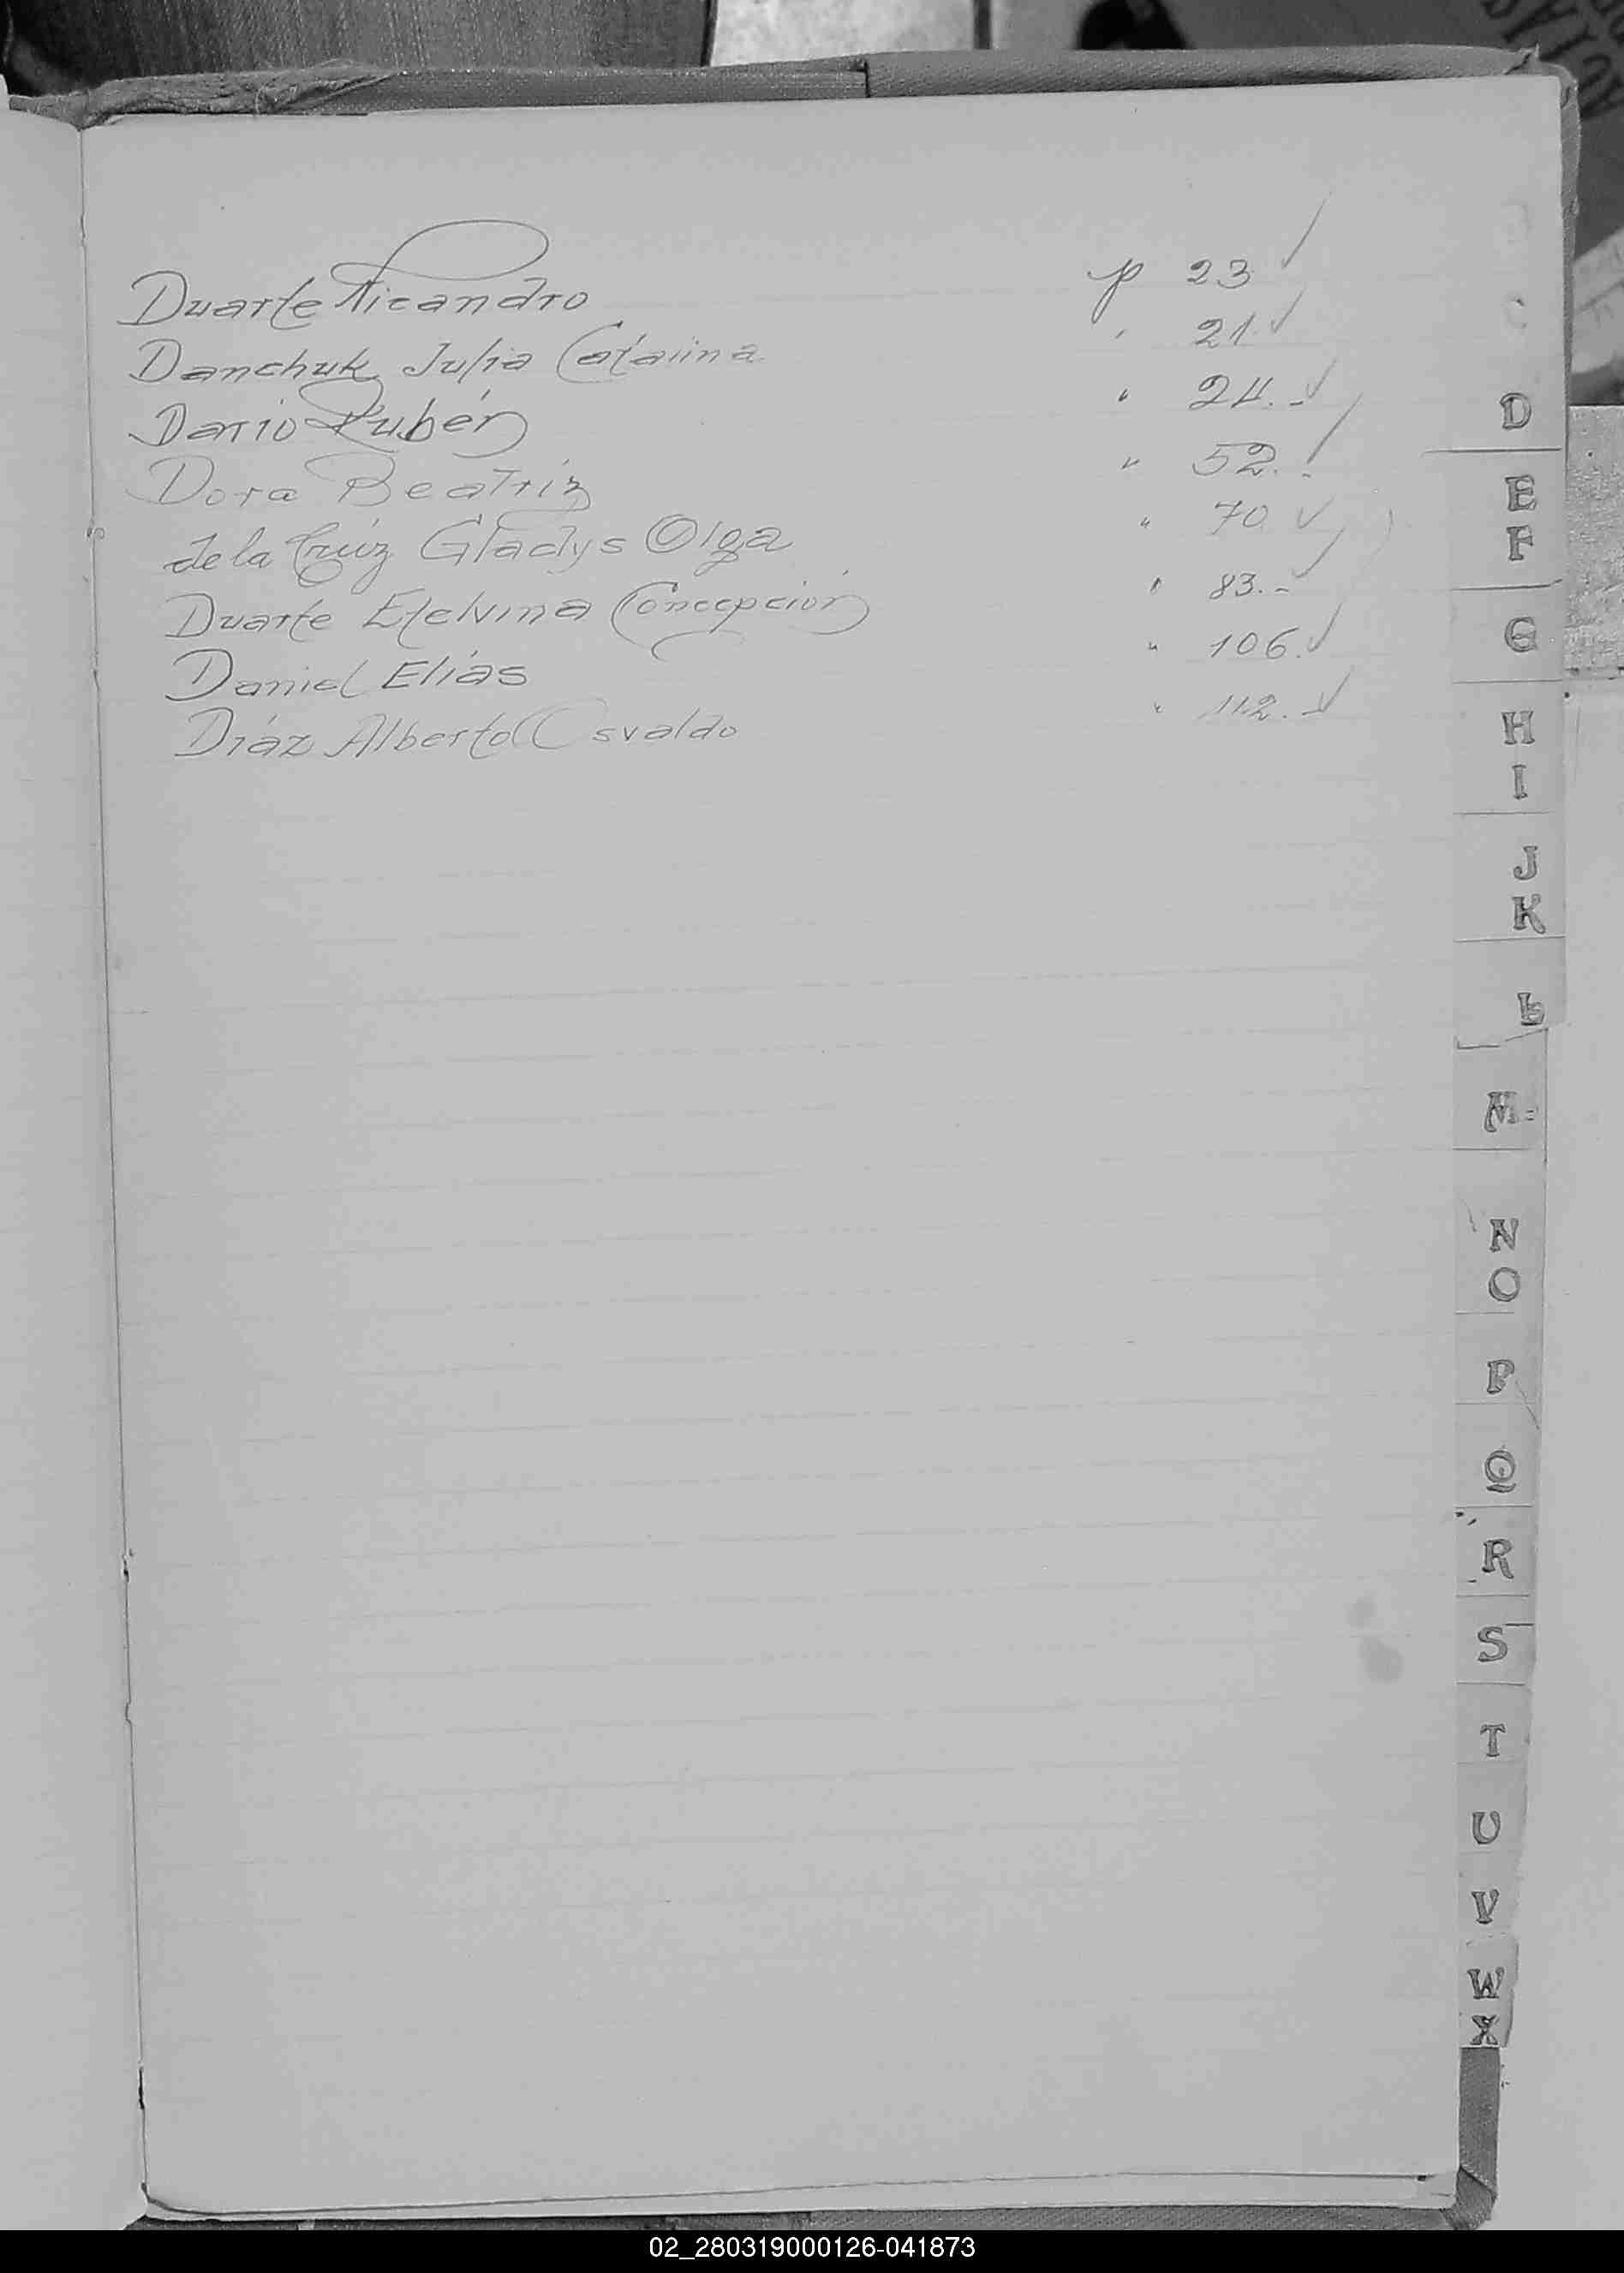 Duarte Nicandro p 23 ✓
Danchuk Julia Catalina " 21. ✓
Dario Rubén " 24.- ✓
Dora Beatriz " 52.- ✓
de la Crúz Gladys Olga " 70 ✓
Duarte Etelvina Concepción " 83.- ✓
Daniel Elías " 106. ✓
Díaz Alberto Osvaldo " 112.- ✓
D
E
F
G
H
I
J
K
L
M
N
O
P
Q
R
S
T
U
V
W
X
02_280319000126-041873